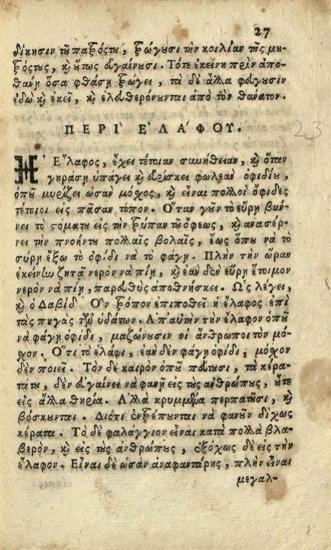 27
δίκησιν τοῦ παξός τους, ξώγουσι τὴν κοιλίαν τῆς μη-
ξός τους, καὶ οὕτως εὐγαίνουσι. Τότε ἐκείνη πρὶν ἀπο-
θάνῃ ὅσα φθάσῃ ξώγει, τὰ δὲ ἄλλα φεύγουσιν
ἐδῶ καὶ ἐκεῖ, καὶ ἐλευθερόνωνται ἀπὸ τὸν θάνατον.
ΠΕΡΙ ΕΛΑΦΟΥ.
23
Ἡ Ἔλαφος, ἔχει τέτοιαν συνήθειαν, καὶ ὅταν
γηράσῃ ὑπάγει καὶ εὑρίσκει φωλεὸν ὀφιδίου,
ὁποῦ μυρίζει ὡσὰν μόχος, καὶ εἶναι πολλοὶ ὄφιδες
τέτοιοι εἰς πᾶσαν τόπον. Ὅταν γοῦν τὸ εὕρῃ βάν-
νει τὸ στόμα της εἰς τὴν ξύπαν τοῦ ὄφεως, καὶ ἀνασέρ-
νει τὴν πνοήν της πολλαῖς βολαῖς, ἕως ὁποῦ νὰ τὸ
σύρῃ ἔξω τὸ ὀφίδι νὰ τὸ φάγῃ. Πλὴν τὴν ὥραν
ἐκείνην ζητᾷ νερὸν νὰ πίῃ, καὶ ἐὰν δὲν εὕρῃ ἕτοιμον
νερὸν νὰ πίῃ, παρευθὺς ἀποθνήσκει. Ὡς λέγει,
καὶ ὁ Δαβίδ. Ὃν ξόπον ἐπιποθεῖ ἡ ἔλαφος ἐπὶ
τὰς πηγὰς τῶν ὑδάτων. Ἀπ' αὐτὴν τὴν ἔλαφον ὁποῦ
νὰ φάγῃ ὀφίδι, μαζώνουσιν οἱ ἄνθρωποι τὸν μό-
χον. Ὅτι τὸ ἐλάφι, ἐὰν δὲν φάγῃ ὀφίδι, μόχον
δὲν ποιεῖ. Τὸν δὲ καιρὸν ὁποῦ πέφτουσι, τὰ κέρα-
τά του, δὲν εὐγαίνει νὰ φανῇ εἰς τοὺς ἀνθρώπους, οὔτε
εἰς ἄλλα θηρία. Ἀλλὰ κρυμμένα περπατοῦσι, καὶ
βόσκουνται. Διότι ἐνξέπουνται νὰ φανοῦν δίχως
κέρατα. Τὸ δὲ φαλάγγιον εἶναι κατὰ πολλὰ βλα-
βερὸν, καὶ εἰς τοὺς ἀνθρώπους, ἐξόχως δὲ εἰς τὴν
ἔλαφον. Εἶναι δὲ ὡσὰν ἀναφαντάρης, πλὴν εἶναι
μεγαλ-